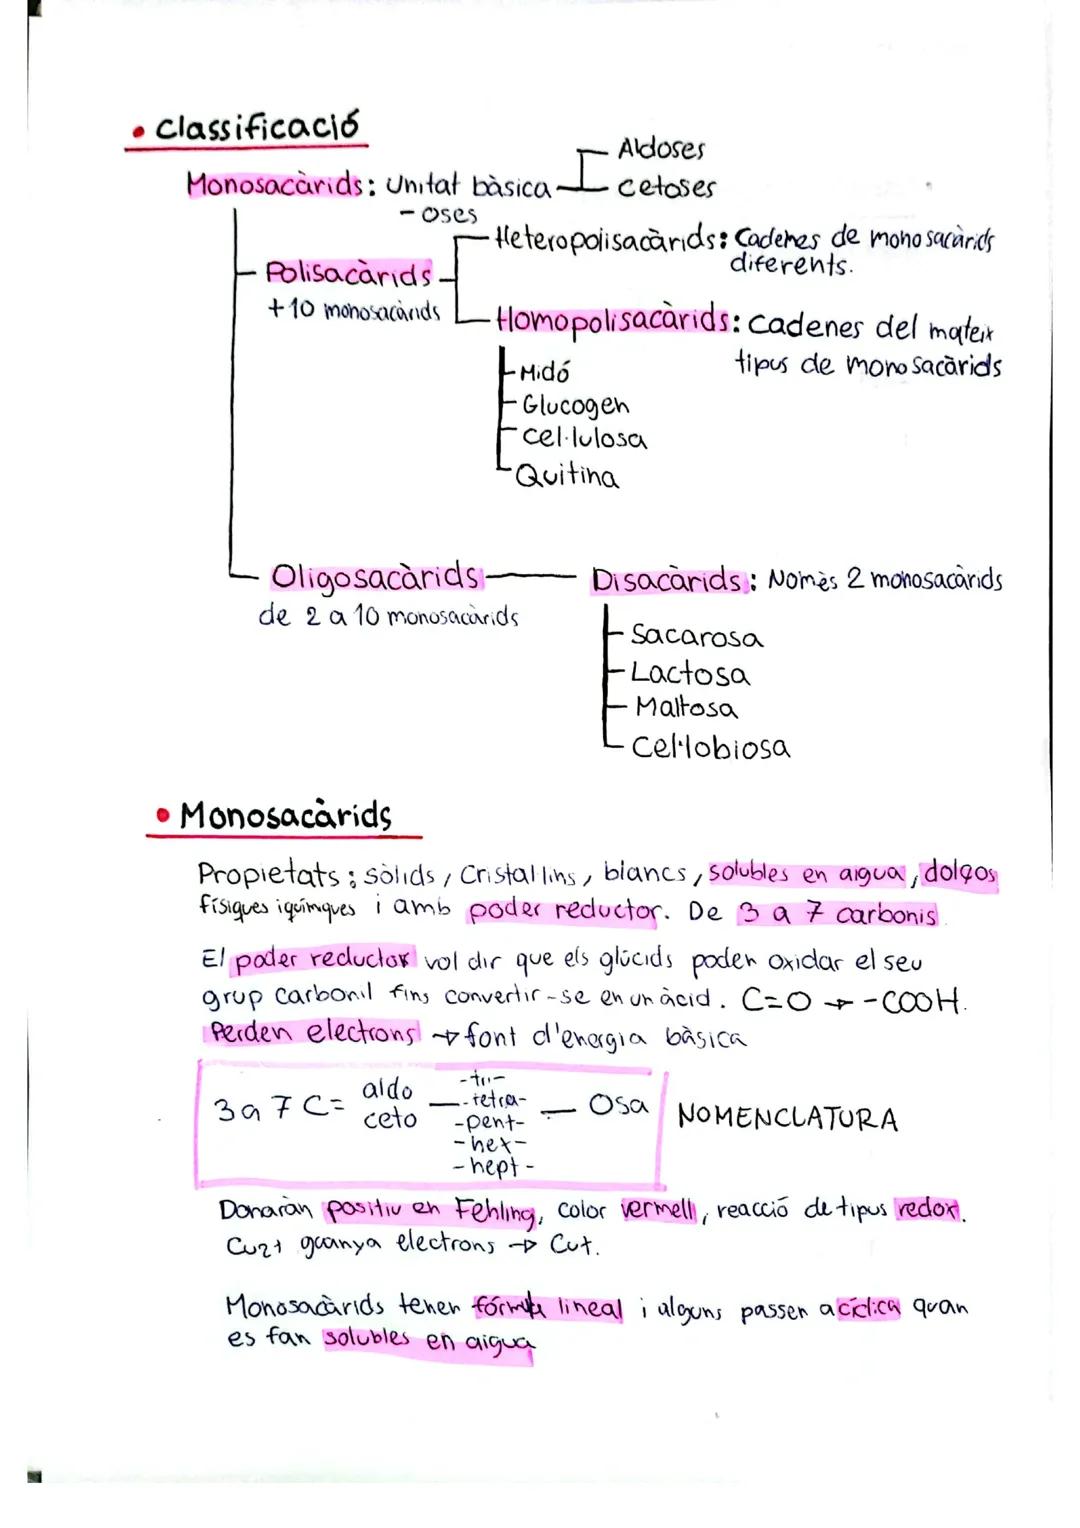 • Classificació
Aldoses
Monosacàrids: Unitat bàsica
cetoses
- oses
Heteropolisacàrids: Cadenes de monosacàrids
diferents.
Polisacàrids
+10 monosacàrids
Homopolisacàrids: Cadenes del mateix
tipus de monosacàrids
Midó
Glucogen
Cel·lulosa
Quitina
Oligosacàrids
de 2 a 10 monosacàrids
Disacàrids: Nomès 2 monosacàrids
Sacarosa
Lactosa
Maltosa
Cel·lobiosa
• Monosacàrids
Propietats: sòlids, Cristal·lins, blancs, solubles en aigua, dolços
físiques i químiques i amb poder reductor. De 3 a 7 carbonis.
El poder reductor vol dir que els glúcids poden oxidar el seu
grup carbonil fins convertir-se en un àcid. C=O → -COOH.
Perden electrons → font d'energia bàsica
3 a 7 C= aldo
ceto
-tri-
-tetra-
-pent-
-hex-
-hept-
— Osa
NOMENCLATURA
Donaràn positiu en Fehling, color vermell, reacció de tipus redox.
Cu2+ guanya electrons → Cu+.
Monosacàrids tenen fórmula lineal i alguns passen a cíclica quan
es fan solubles en aigua